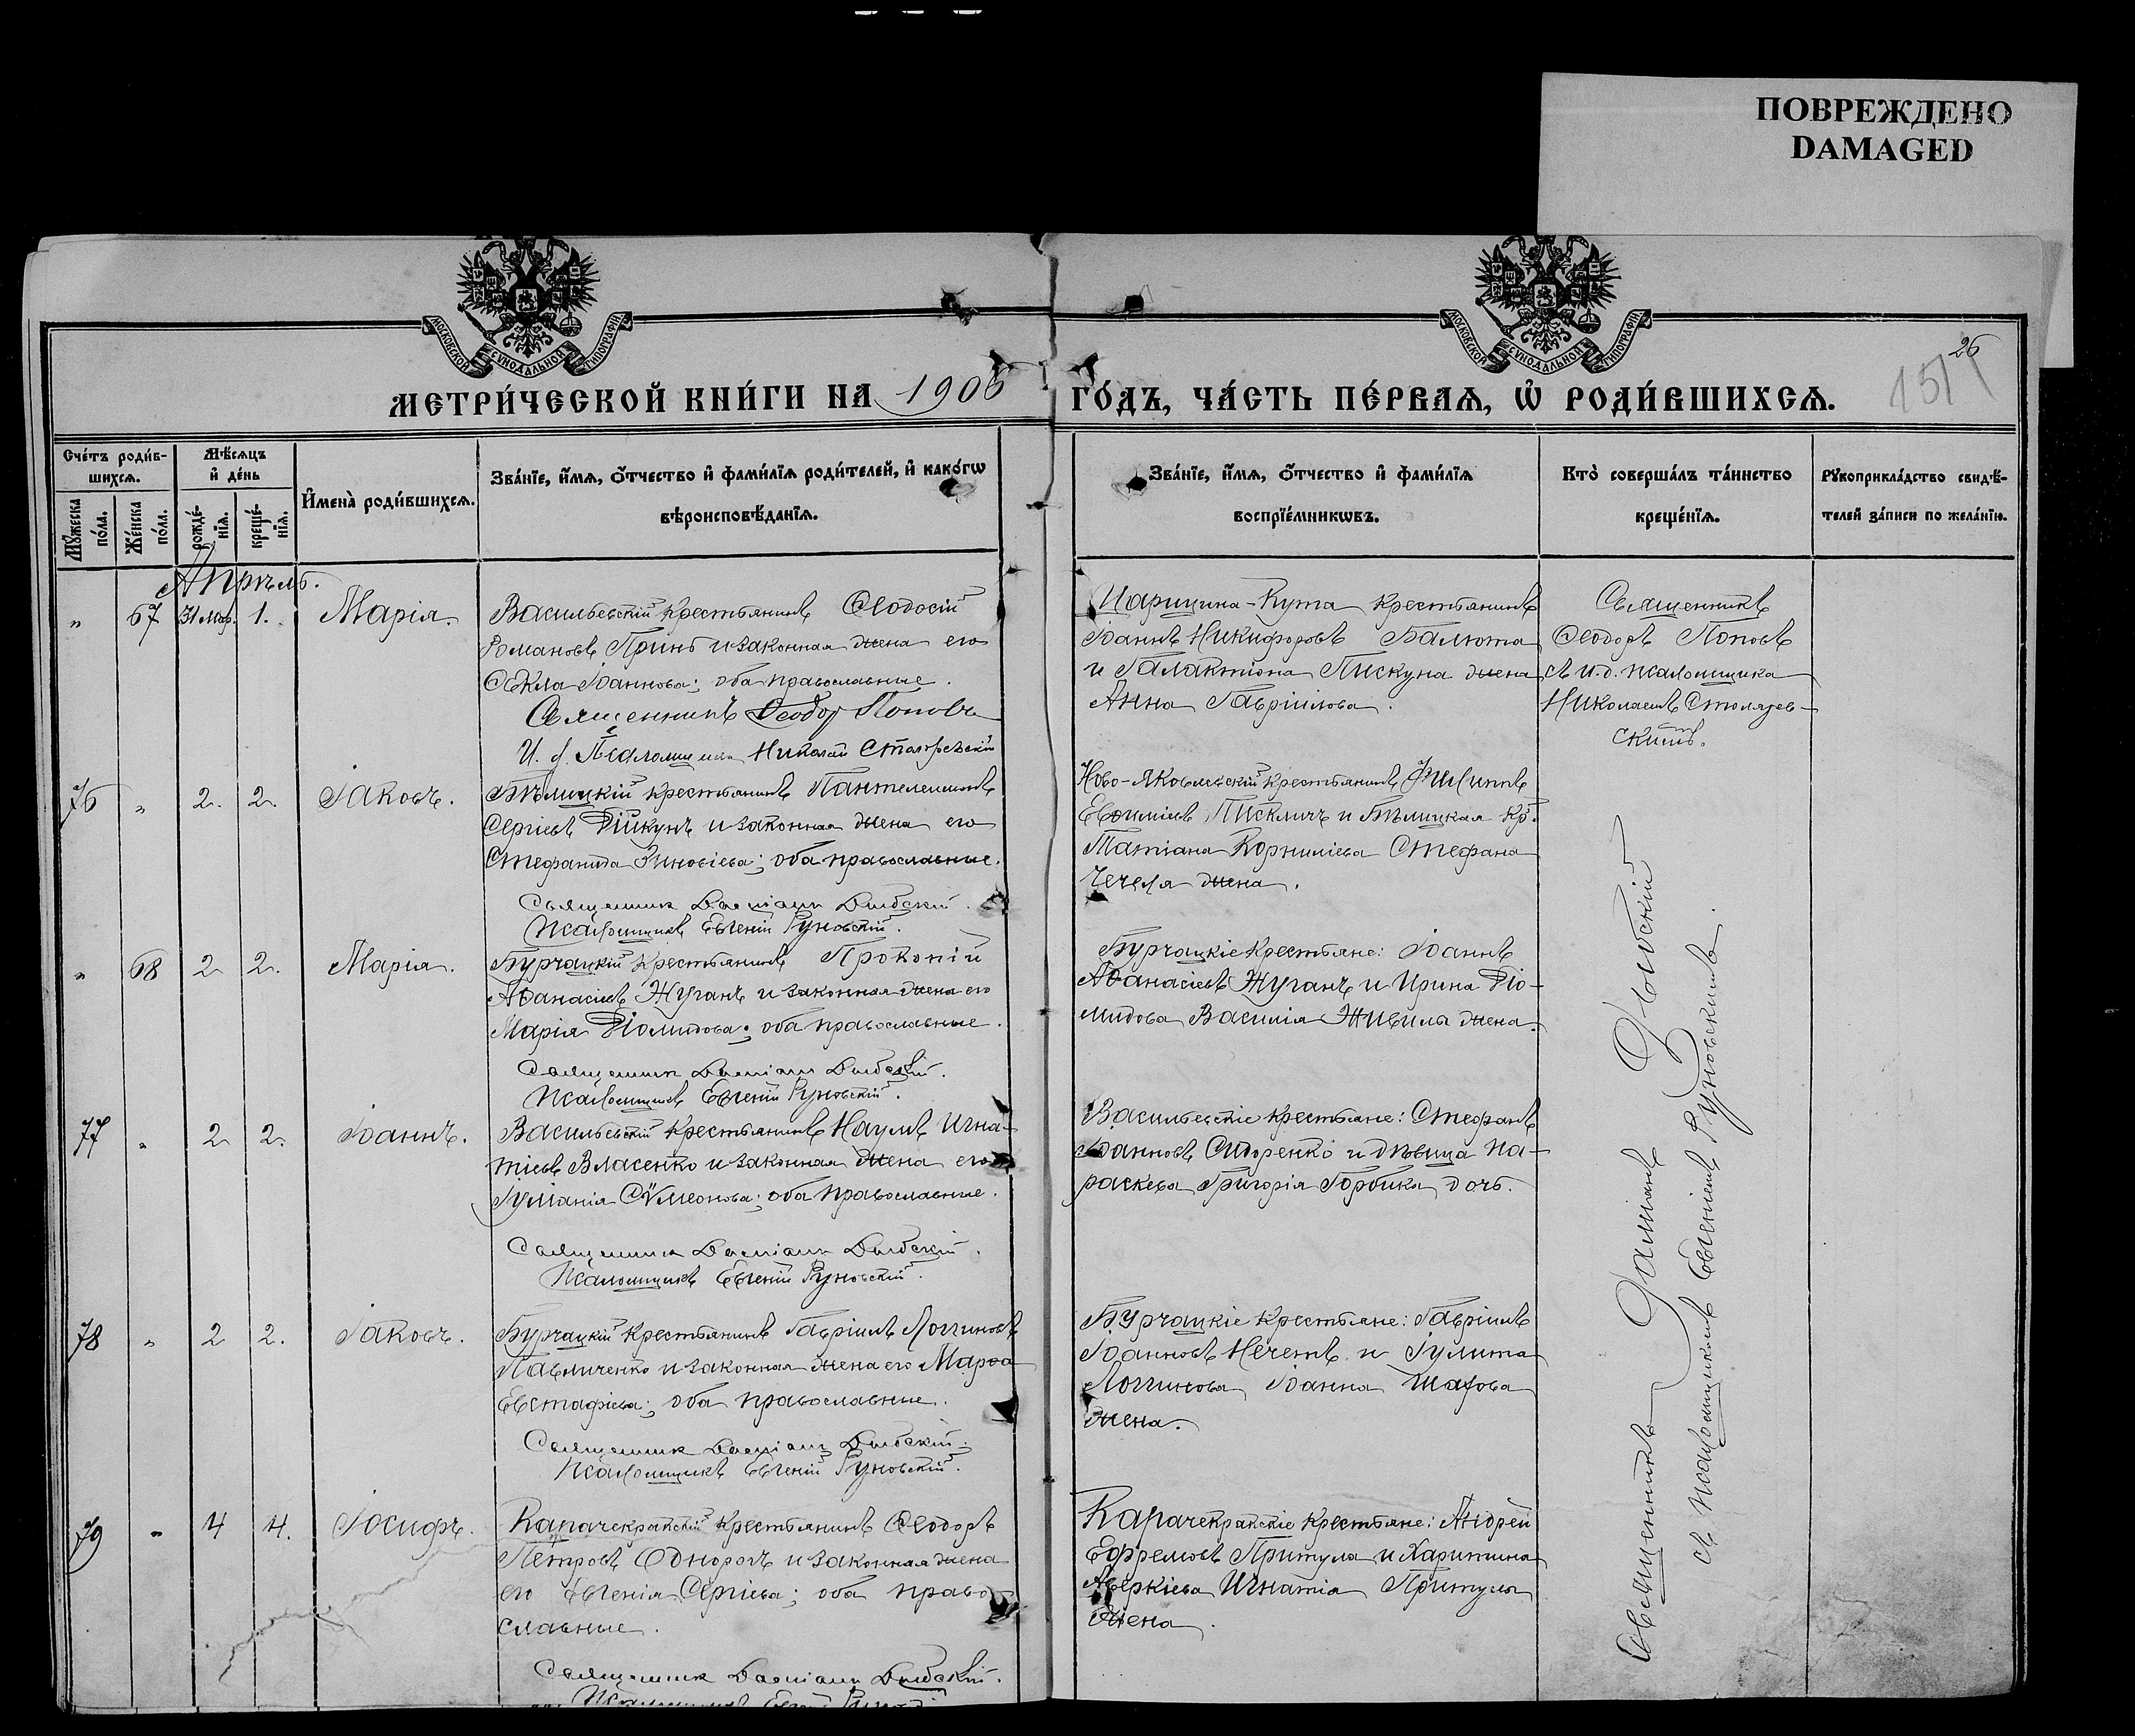 ПОВРЕЖДЕНО
DAMAGED
МОСКОВСКОЙ СѴНОДАЛЬНОЙ ТИПОГРАФІИ
МОСКОВСКОЙ СѴНОДАЛЬНОЙ ТИПОГРАФІИ
26
МЕТРИ́ЧЕСКОЙ КНИ́ГИ НА 1906 ГО́ДЪ, ЧА́СТЬ ПЕ́РВАѦ, Ѡ҆ РОДИ́ВШИХСѦ.
Сче́тъ роди́в-
шихсѧ.
Мꙋ́жеска по́ла.
Же́нска по́ла.
Мѣ́сѧцъ
и҆ де́нь
рожде́-
нїѧ.
креще́-
нїѧ.
И҆мена̀ роди́вшихсѧ.
Зва́нїе, и҆́мѧ, ѻ҆́тчество и҆ фами́лїѧ роди́телей, и҆ како́гѡ
вѣроисповѣ́данїѧ.
Зва́нїе, и҆́мѧ, ѻ҆́тчество и҆ фами́лїѧ
воспрїе́мникѡвъ.
Кто̀ соверша́лъ та́инство
креще́нїѧ.
Рꙋкоприкла́дство свидѣ́-
телей за́писи по жела́нїю.
Апрѣль.
„ 67 31 мар. 1. Марія.
Васильевскій крестьянинъ Ѳеодосій
Романовъ Принь и законная жена его
Ѳекла Іоаннова; оба православные.
Священникъ Ѳеодор Поповъ
И. д. Псаломщика Николай Столяревскій
Царицина-Кута крестьянинъ
Іоаннъ Никифоровъ Балюта
и Галактіона Пискуна жена
Анна Гавріилова.
Священникъ
Ѳеодоръ Поповъ
съ и. д. псаломщика
Николаемъ Столярев-
скимъ.
76 „ 2. 2. Іаковъ.
Бѣлицкій крестьянинъ Пантелеимонъ
Сергіевъ Дійкунъ и законная жена его
Стефанида Зиновіева; оба православные.
Священник Даміанъ
Псаломщикъ Евгеній Руновскій.
Ново-Яковлевскій крестьянинъ Филиппъ
Евѳиміевъ Пискличъ и Бѣлицкая кр.
Татіана Корниліева Стефана
Чечеля жена.
„ 68 2 2. Марія.
Бурчацкій крестьянинъ Прокопій
Аѳанасіевъ Жуганъ и законная жена его
Марія Діомидова; оба православные.
Священник Даміанъ
Псаломщикъ Евгеній Руновскій.
Бурчацкіе крестьяне: Іоаннъ
Аѳанасіевъ Жуганъ и Ирина Діо-
мидова Василія Живилы жена.
77 „ 2 2. Іоаннъ.
Васильевскій крестьянинъ Наумъ Игна-
тіевъ Власенко и законная жена его
Іуліанія Сѵмеонова; оба православные.
Священник Даміанъ
Псаломщикъ Евгеній Руновскій.
Васильевскіе крестьяне: Стефанъ
Іоанновъ Сидоренко и дѣвица Па-
раскева Григорія Горбика дочь.
78 „ 2 2. Іаковъ.
Бурчацкій крестьянинъ Гавріилъ Логгиновъ
Павличенко и законная жена его Марѳа
Евстафіева; оба православные.
Священник Даміанъ
Псаломщикъ Евгеній Руновскій.
Бурчацкіе крестьяне: Гавріилъ
Іоанновъ Нечетъ и Іулитта
Логгинова Іоанна Шахова
жена.
79 „ 4 4. Іосифъ.
Карачекракскій крестьянинъ Ѳеодоръ
Петровъ Однорогъ и законная жена
его Евгенія Сергіева; оба право-
славные.
Священник Даміанъ
Карачекракскіе крестьяне: Андрей
Ефремовъ Притула и Харитина
Аверкіева Игнатія Притулы
жена.
Священникъ Даміанъ
съ псаломщикомъ Евгеніемъ Руновскимъ.